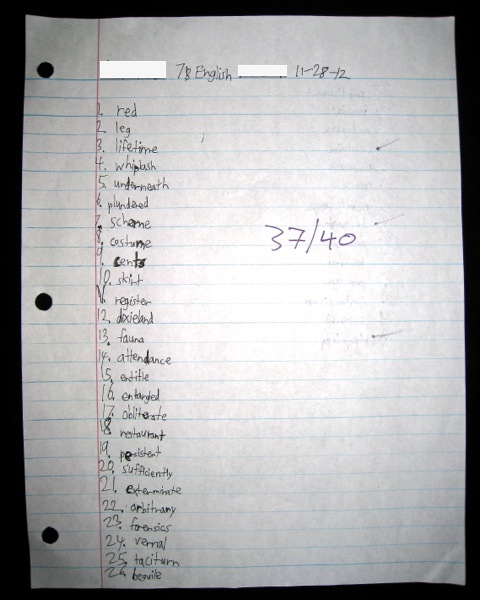 7B English 11-28-12
1. red
2. leg
3. lifetime
4. whiplash
5. underneath
6. plundered
7. scheme
8. costume
9. cents
10. skirt
11. register
12. dixieland
13. fauna
14. attendance
15. entitle
16. entangled
17. obliterate
18. restaurant
19. persistent
20. sufficiently
21. exterminate
22. arbitrary
23. forensics
24. vernal
25. taciturn
26. beguile
37/40